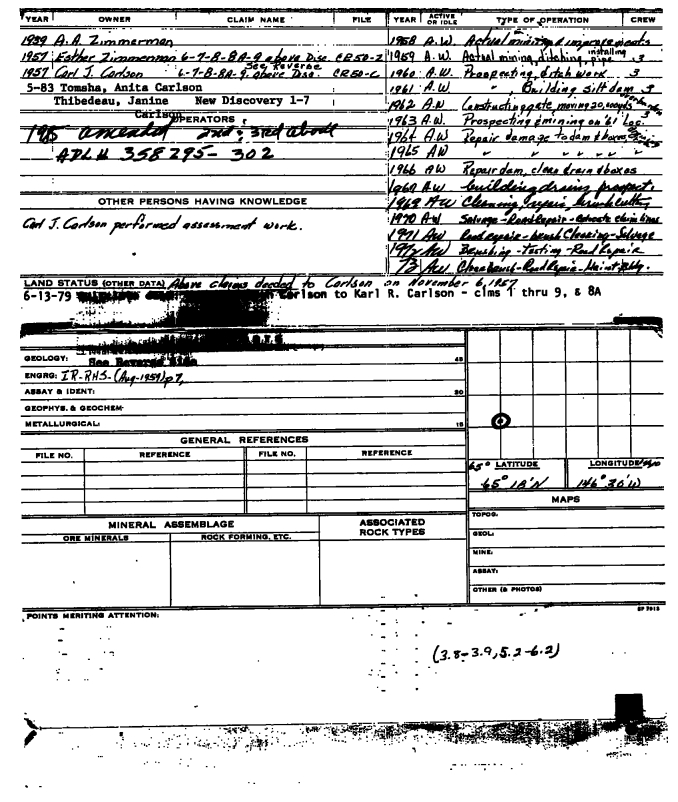 YEAR OWNER CLAIM NAME FILE
1939 A. A. Zimmerman
1957 Esther Zimmerman 6-7-8-8A-9 above Disc. CR50-2
See Reverse
1957 Carl J. Carlson 6-7-8-8A-9. above Disc. CR50-2
5-83 Tomsha, Anita Carlson
Thibedeau, Janine New Discovery 1-7
Carlson
OPERATORS
1985 amended 2nd & 3rd above
ADL# 358295-302
OTHER PERSONS HAVING KNOWLEDGE
Carl J. Carlson performed assessment work.
YEAR ACTIVE OR IDLE TYPE OF OPERATION CREW
1958 A.W. Actual mining & improvements
installing
1959 A.W. Actual mining, ditching, pipe 3
1960 A.W. Prospecting, ditch work 3
1961 A.W. " , Building silt dam 3
1962 A.W Constructing gate, moving 20,000 yds
1963 A.W. Prospecting & mining on '61 Loc. 3
1964 A.W Repair damage to dam & boxes
1965 AW " " " " "
1966 AW Repair dam, clean drain & boxes
AW building drains prospect.
1969 AW Cleaning, repair, brush cutting
1970 AW Salvage-Road Repair-
1971 AW Road repair-brush Clearing-Salvage
1972 AW Brushing-Testing-Road Repair
73 AW Clear brush-Road Repair-Maint. Bldg.
LAND STATUS (OTHER DATA) Above claims deeded to Carlson on November 6, 1957
6-13-79 Carlson to Karl R. Carlson - clms 1 thru 9, & 8A
GEOLOGY: See Reverse Side 45
ENGRG: IR-RHS-(Aug-1959) p7,
ASSAY & IDENT: 30
GEOPHYS. & GEOCHEM-
METALLURGICAL: 15
GENERAL REFERENCES
FILE NO. REFERENCE FILE NO. REFERENCE
65° LATITUDE LONGITUDE
65° 18'N 146° 30'W
MAPS
TOPOG.
GEOL:
MINE:
ASSAY:
OTHER (& PHOTOS)
MINERAL ASSEMBLAGE ASSOCIATED ROCK TYPES
ORE MINERALS ROCK FORMING, ETC.
POINTS MERITING ATTENTION:
(3.8-3.9, 5.2-6.2)